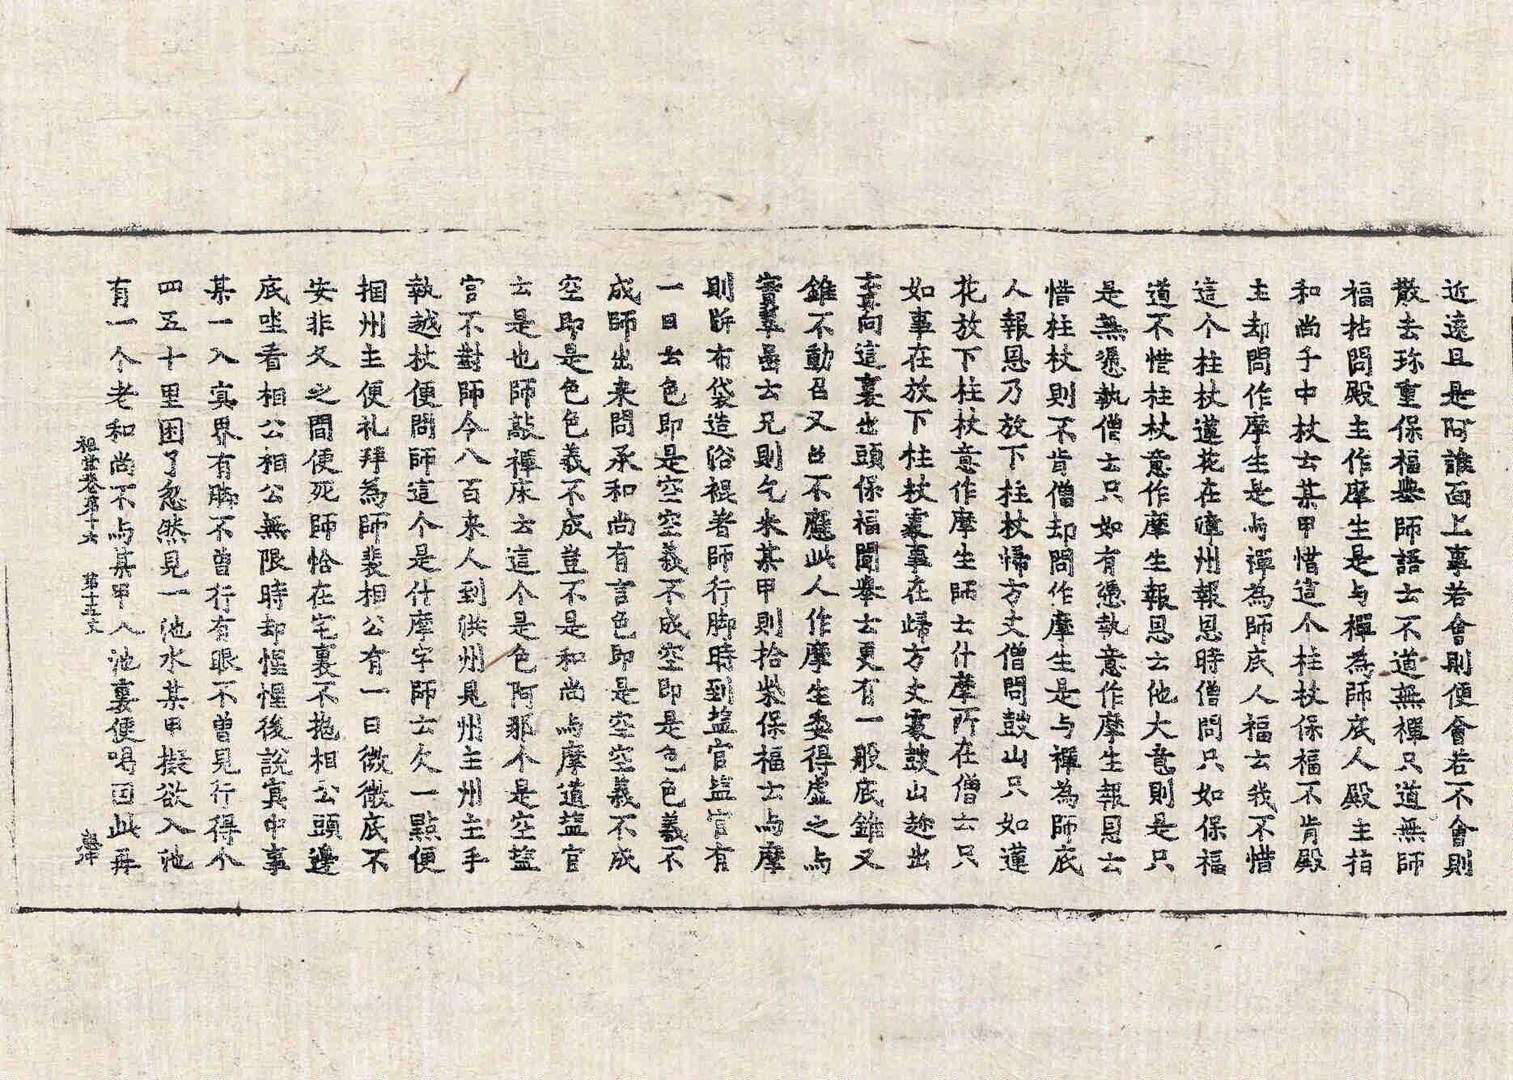 近遠且是阿誰面上事若會則便會若不會則
散去珎重保福舉師語士不道無禪只道無師
福拈問殿主作摩生是与禪為師底人殿主指
和尚手中杖士某甲惜這个柱杖保福不肯殿
主却問作摩生是与禪為師底人福士我不惜
這个柱杖蓮花在漳州報恩時僧問只如保福
道不惜柱杖意作摩生報恩士他大意則是只
是無憑執僧士只如有憑執意作摩生報恩士
惜柱杖則不肯僧却問作摩生是与禪為師底
人報恩乃放下柱杖歸方丈僧問鼓山只如蓮
花放下柱杖意作摩生師士什摩所在僧士只
如事在放下柱杖裏事在歸方丈裏鼓山趂出
云向這裏出頭保福聞舉士更有一般底錐又
錐不動召又召不應此人作摩生委得虛之与
實羣晶士兄則乞米某甲則拾柴保福士与摩
則臍布袋造浴裩著師行脚時到塩官塩官有
一日士色即是空空義不成空即是色色義不
成師出来問承和尚有言色即是空空義不成
空即是色色義不成豈不是和尚与摩道塩官
士是也師敲禪床士這个是色阿那个是空塩
官不對師令八百来人到洪州見州主州主手
執越杖便問師這个是什摩字師士欠一點便
捆州主便礼拜為師裴相公有一日微微底不
安非久之間便死師恰在宅裏不抛相公頭邊
底坐看相公相公無限時却惺惺後說冥中事
某一入冥界有脚不曾行有眼不曾見行得个
四五十里困了忽然見一池水某甲擬欲入池
有一个老和尚不与某甲入池裏便喝因此再
祖堂卷第十六 第十五丈